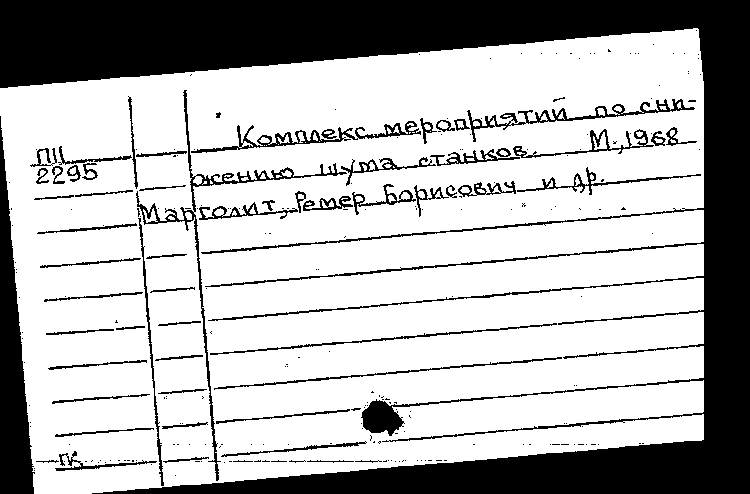 Комплекс мероприятий по сни-
ПШ
2295
жению шума станков. М., 1968
Марголит, Ремер Борисович и др.
ПК